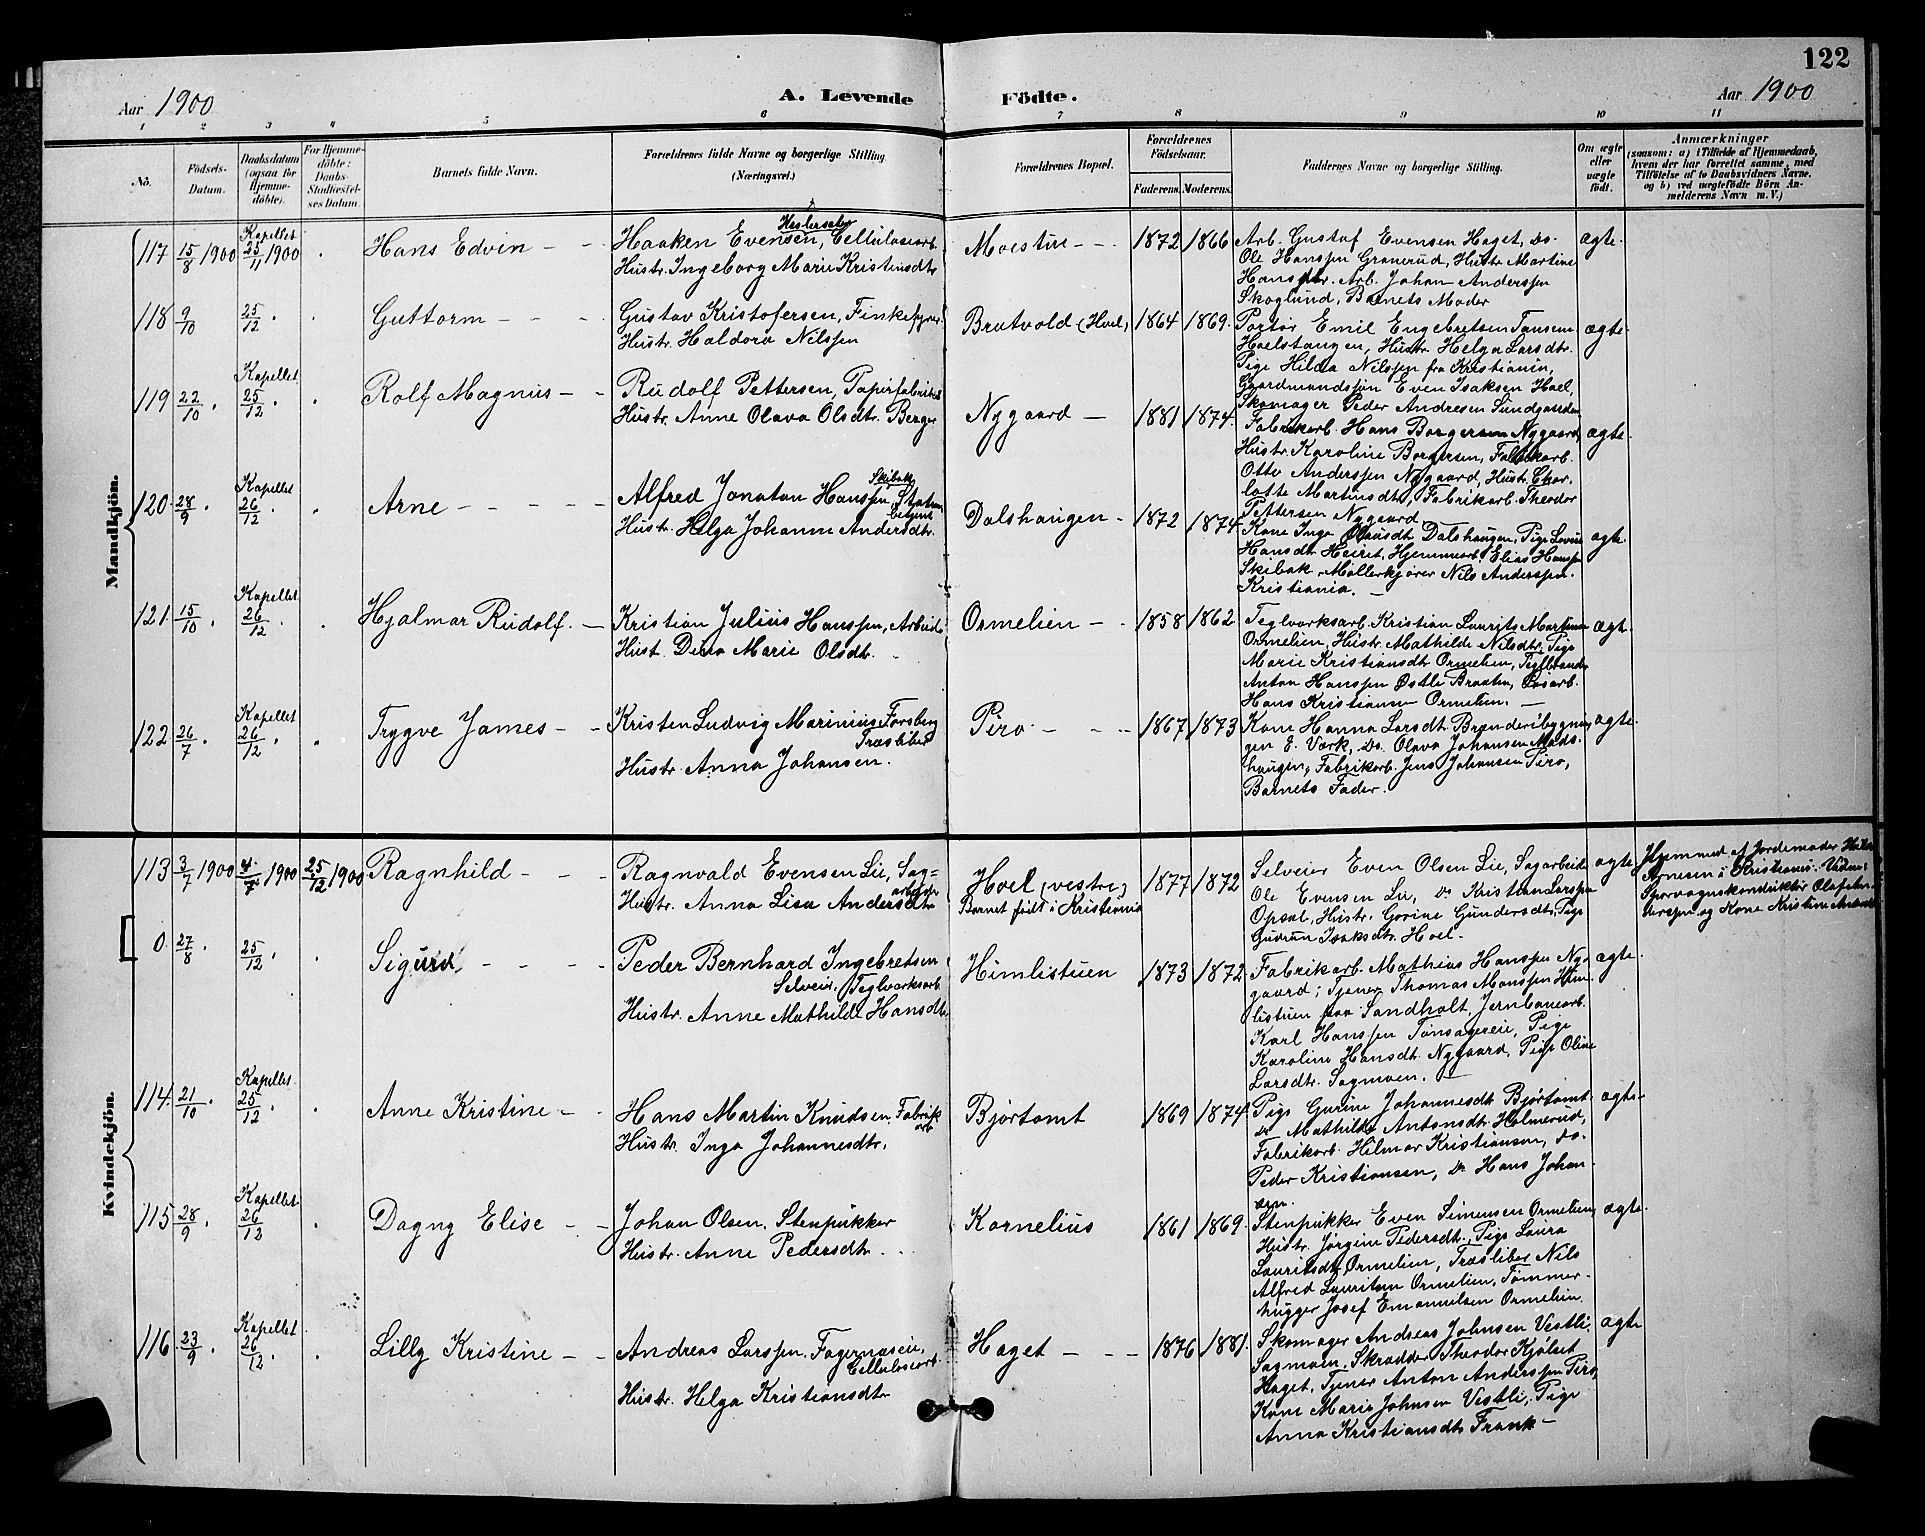 122
Aar 1900
A. Levende Födte.
Aar 1900
1 2 3 4 5 6 7 8 9 10 11
No.
Födsels-
Datum.
Daabsdatum
(ogsaa for
Hjemme-
döbte).
For Hjemme-
döbte:
Daabs-
Stadfæstel-
ses Datum.
Barnets fulde Navn.
Forældrenes fulde Navne og borgerlige Stilling
(Næringsvei.)
Forældrenes Bopæl.
Forældrenes
Födselsaar.
Faderens. Moderens.
Faddernes Navne og borgerlige Stilling.
Om ægte
eller
uægte
födt.
Anmærkninger
(saasom: a) i Tilfælde af Hjemmedaab,
hvem der har forrettet samme, med
Tilföielse af to Daabsvidners Navne,
og b) ved uægtefödte Börn An-
melderens Navn m. V.)
Mandkjön.
117 15/8 1900 Kapellet 25/11 1900 Hans Edvin
Haaken Evensen, Celluloseorb.
Hustr. Ingeborg Marie Kristiansdtr
Moestue 1872 1866
Arb. Gustaf Evensen Haget, Do.
Ole Hanssen Granerud, Hustr Martine
Hansdtr. Arb. Johan Anderssen
Skoglund, Barnets Moder
ægte
118 9/10 25/12 Guttorm
Gustav Kristofersen,
Hustr. Haldora Nilssen
Bratvold (Hoel) 1864 1869
Portør Emil Engebretsen Tansem
Hoelstangen, Hustr Helga Larsdtr.
Pige Hilda Nilssen fra Kristiania,
Gaardmandssøn Even Isaksen Hoel,
Skomager Peder Andresen Sundgaarden
ægte
119 22/10 Kapellet 25/12 Rolf Magnus
Rudolf Pettersen, Papirfabrikarb
Hustr. Anne Olava Olsdtr. Berger
Nygaard 1881 1874
Fabrikarb. Hans Borgersen Nygaard,
Hustr. Karoline Borgersen, Fabrikarb.
Otto Anderssen Nygaard, Hustr. Char-
lotte Martinsdtr, Fabrikarb. Theodor
Pettersen Nygaard
ægte
120 28/9 Kapellet 26/12 Arne
Alfred Jonatan Hanssen Skibak
Hustr. Helga Johanne Andersdtr.
Dalshaugen 1872 1874
Kone Inga Olausdtr Dalshaugen, Pige
Hansdtr Heiret, Hjemmearb. Elias Hanssen
Skibak, Møllerkjører Nils Anderssen
Kristiania.
ægte
121 15/10 Kapellet 26/12 Hjalmar Rudolf
Kristian Julius Hanssen, Arbeid
Hustr. Dina Marie Olsdtr.
Ormelien 1858 1862
Teglværksarb. Kristian Laurits Martinsen
Ormelien, Hustr. Mathilde Nilsdtr, Pige
Marie Kristiansdtr Ormelien,
Anton Hanssen Østli Braaten,
Hans Kristiansen Ormelien.
ægte
122 26/7 Kapellet 26/12 Trygve James
Kristen Ludvig Marinius Forsberg
Træsliber
Hustr. Anna Johansen.
Piro 1867 1873
Kone Hanna Larsdtr. Brænderibygnin-
gen E. Værk, Do. Olava Johansen Mads-
haugen, Fabrikarb. Jens Johansen Piro,
Barnets Fader.
ægte
Kvindekjön.
113 3/7 1900 4/7 1900 25/12 1900 Ragnhild
Ragnvald Evensen Lie, Sag-
arbeider
Hustr. Anna Lisa Andersdtr
Hoel (vestre)
Barnet født i Kristiania
1877 1872
Selveier Even Olsen Lie, Sagarbeider
Ole Evensen Lie, Do Kristian Larssen
Opsal, Hustr. Gorine Gundersdtr, Pige
Gudrun Isaksdtr. Hoel.
ægte
Hjemmed. af Jordemoder
Arnesen i Kristiania. Vidner:
Sporvognskonduktør Olaf
og Kone Kristine
0 27/8 25/12 Sigurd
Peder Bernhard Ingebretsen
Selveier, Teglværksarb.
Hustr. Anne Mathilde Hansdtr.
Himlistuen 1873 1872
Fabrikarb. Mathias Hanssen Ny-
gaard; Tjener Thomas Hanssen Him-
listuen fra Sandholt, Jernbanearb.
Karl Hanssen Tonsagereie, Pige
Karoline Hansdtr Nygaard, Pige Oline
Larsdtr. Sagmoen.
ægte
114 21/10 Kapellet 25/12 Anne Kristine
Hans Martin Knudsen, Fabrik
arb.
Hustr. Inga Johannesdtr.
Bjørtomt 1869 1874
Pige Gurine Johannesdtr Bjørtomt
Do Mathilde Antonsdtr. Holmerud,
Fabrikarb. Hilmar Kristiansen, Do.
Peder Kristiansen, Do Hans Johan-
sen.
ægte
115 28/9 Kapellet 26/12 Dagny Elise
Johan Olsen, Stenpukker
Hustr. Anne Pedersdtr
Kornelius 1861 1869
Stenpukker Even Simensen Ormelien,
Hustr. Jørgine Pedersdtr, Pige Laura
Lauritsdtr Ormelien, Træsliber Nils
Alfred Lauritsen Ormelien, Tømmer-
hugger Josef Emanuelsen Ormelien.
ægte
116 23/9 Kapellet 26/12 Lilly Kristine
Andreas Larssen, Fagernæseie,
Cellulosearb.
Hustr. Helga Kristiansdtr
Haget 1876 1881
Skomager Andreas Johnsen Vestli,
Sagmoen, Skrædder Theodor Kjølset
Haget, Tjener Anton Anderssen Piro,
Kone Marie Johnsen Vestli, Pige
Anna Kristiansdtr Frank
ægte